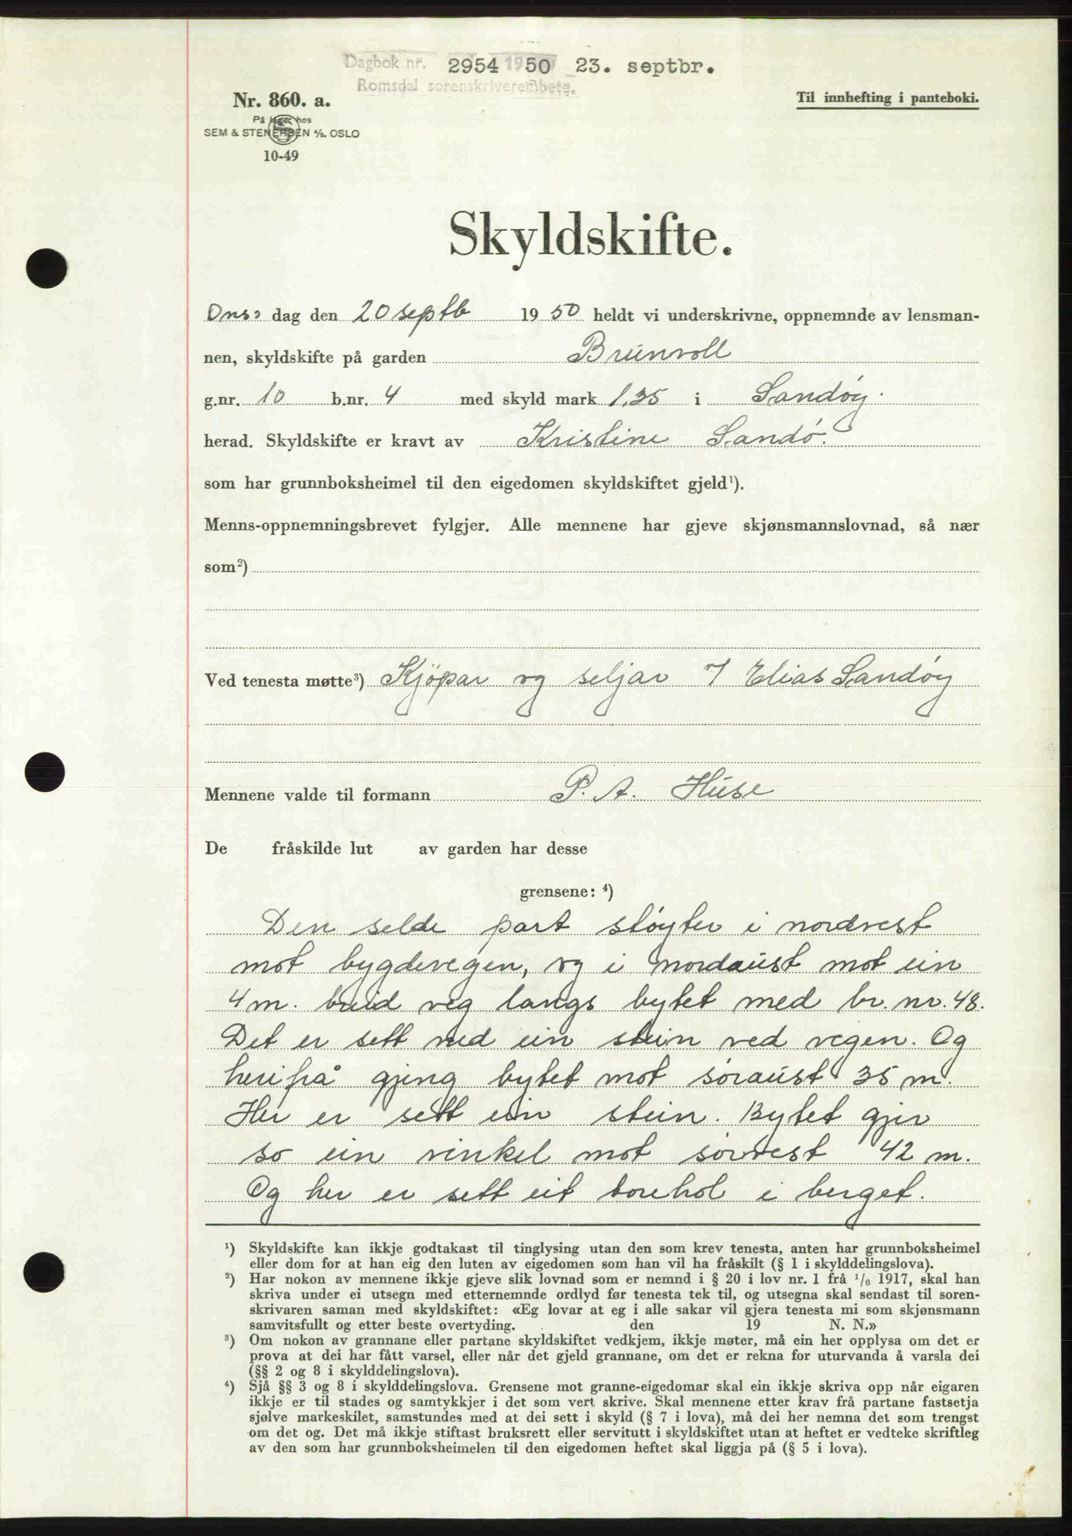 Dagbok nr. 2954 1950 23. septbr.
Romsdal sorenskriverembete.
Nr. 860. a.
Til innhefting i panteboki.
På lager hos
SEM & STENERSEN A/S. OSLO
10-49
Skyldskifte.
Ons- dag den 20 septb 1950 heldt vi underskrivne, oppnemnde av lensman-
nen, skyldskifte på garden Brunvoll
g.nr. 10 b.nr. 4 med skyld mark 1,35 i Sandøy.
herad. Skyldskifte er kravt av Kristine Sandø.
som har grunnboksheimel til den eigedomen skyldskiftet gjeld¹).
Menns-oppnemningsbrevet fylgjer. Alle mennene har gjeve skjønsmannslovnad, så nær
som²)
Ved tenesta møtte³) Kjöpar og seljar v/ Elias Sandøy
Mennene valde til formann P. A. Huse
De fråskilde lut av garden har desse
grensene: ⁴)
Den selde part støyter i nordvest
mot bygdevegen, og i nordaust mot ein
4 m. breid veg langs bytet med br. nr. 48.
Det er sett ned ein stein ved vegen. Og
herifrå gjeng bytet mot søraust 35 m.
Her er sett ein stein. Bytet gjer
so ein vinkel mot sørvest 42 m.
Og her er sett eit borehol i berget.
¹) Skyldskifte kan ikkje godtakast til tinglysing utan den som krev tenesta, anten har grunnboksheimel
eller dom for at han eig den luten av eigedomen som han vil ha fråskilt (§ 1 i skylddelingslova).
²) Har nokon av mennene ikkje gjeve slik lovnad som er nemnd i § 20 i lov nr. 1 frå ¹/₆ 1917, skal han
skriva under ei utsegn med etternemnde ordlyd før tenesta tek til, og utsegna skal sendast til soren-
skrivaren saman med skyldskiftet: «Eg lovar at eg i alle sakar vil gjera tenesta mi som skjønsmann
samvitsfullt og etter beste overtyding. den 19 N. N.»
³) Om nokon av grannane eller partane skyldskiftet vedkjem, ikkje møter, må ein her opplysa om det er
prova at dei har fått varsel, eller når det gjeld grannane, om det er rekna for uturvanda å varsla dei
(§§ 2 og 8 i skylddelingslova).
⁴) Sjå §§ 3 og 8 i skylddelingslova. Grensene mot granne-eigedomar skal ein ikkje skriva opp når eigaren
ikkje er til stades og samtykkjer i det som vert skrive. Skal mennene etter krav frå partane fastsetja
sjølve markeskilet, samstundes med at dei sett i skyld (§ 7 i lova), må dei her nemna det som trengst
om det og. Det må ikkje stiftast bruksrett eller servitutt i skyldskiftet utan at heftet er vedteke skriftleg
av den som har grunnboksheimelen til den eigedomen heftet skal liggja på (§ 5 i lova).